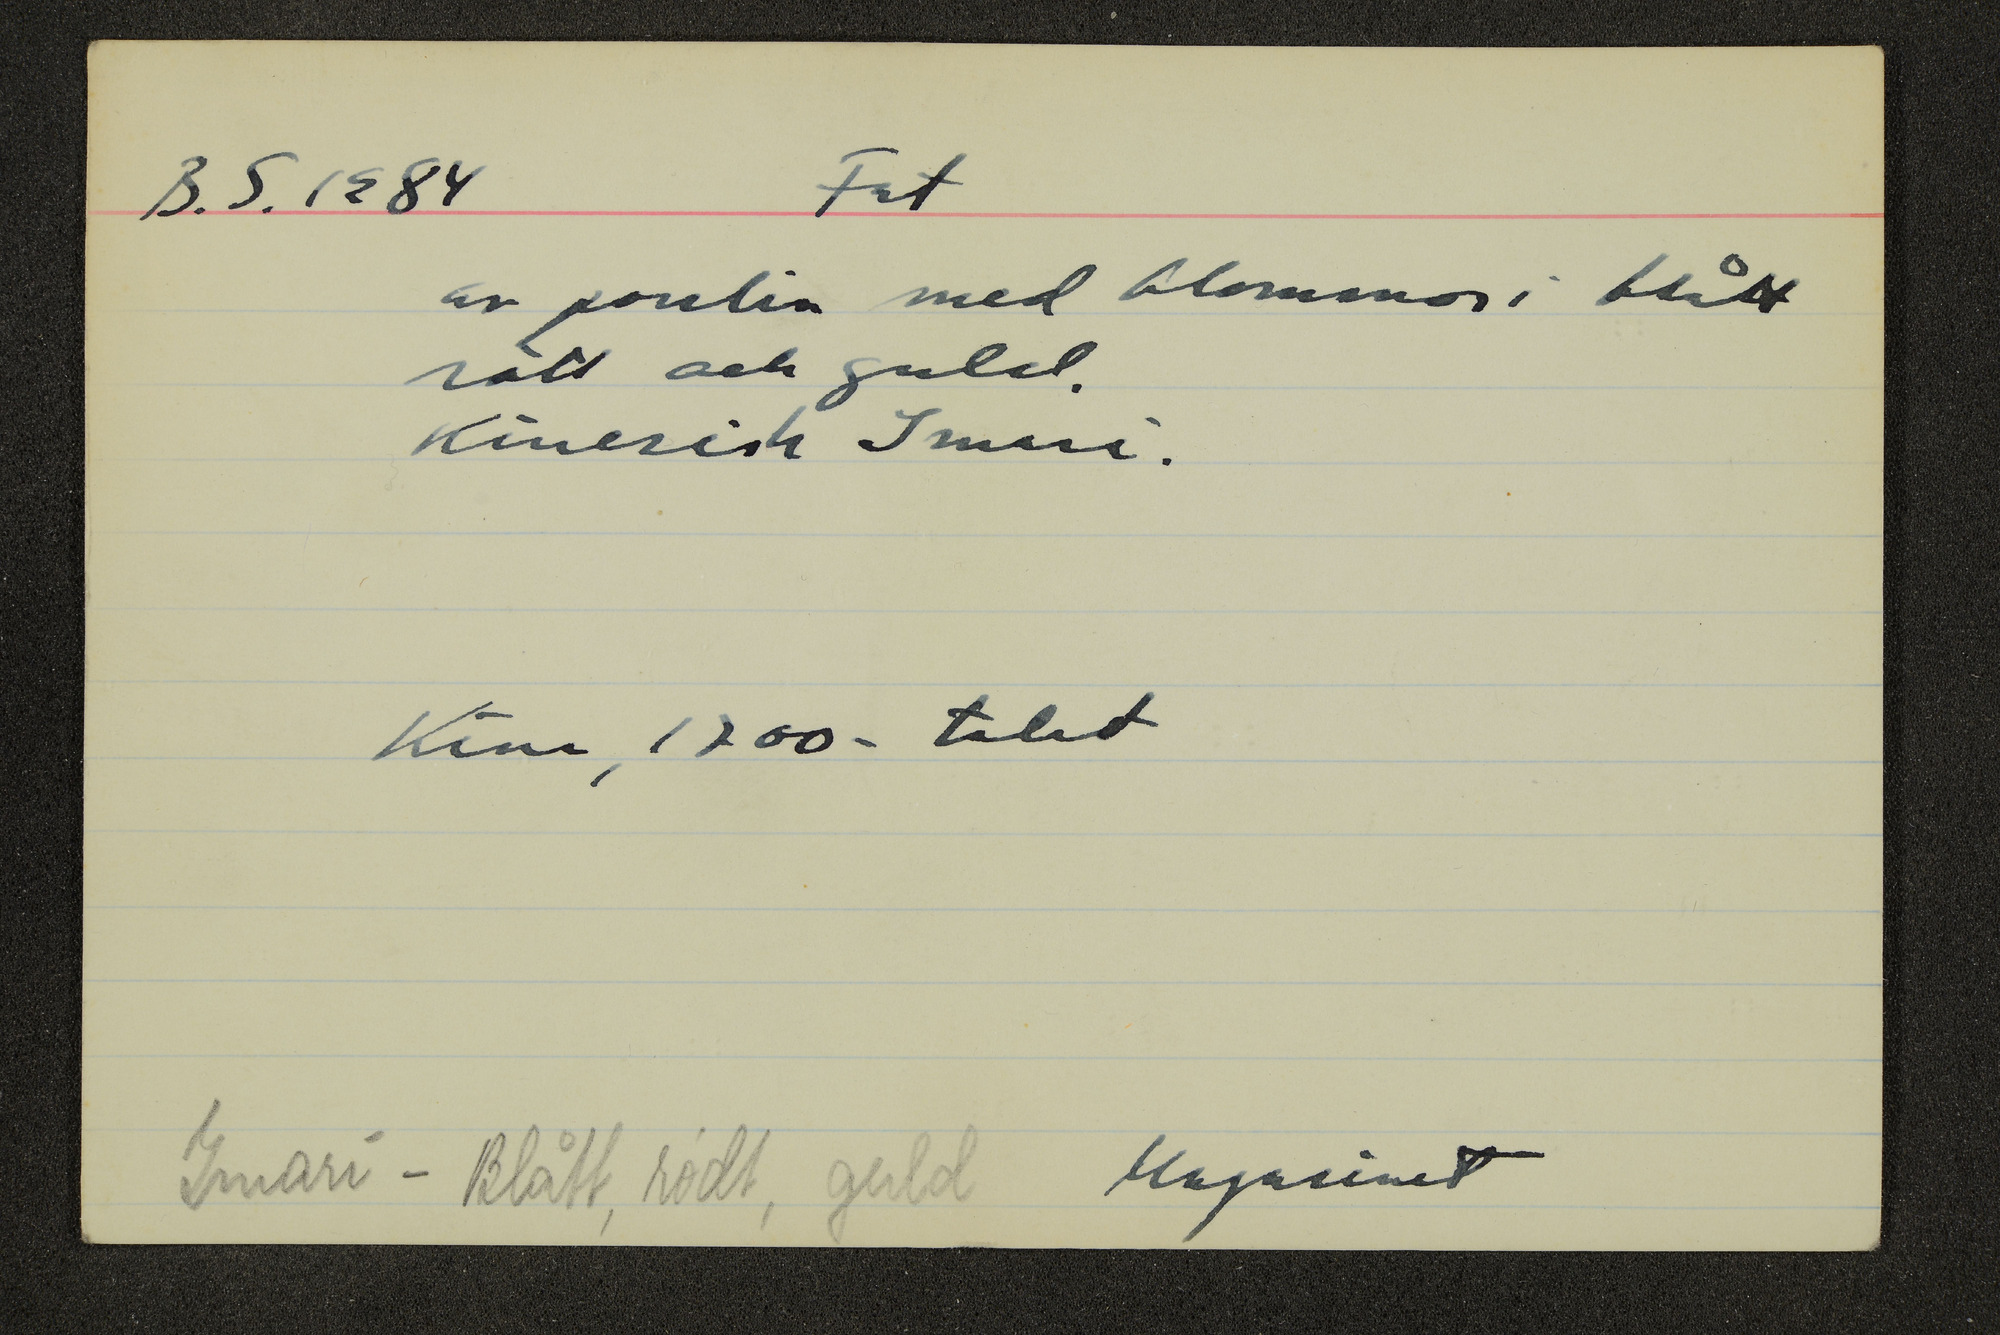 B.S. 1284 Fat
av porslin med blommor i blått
rött och guld.
Kinesisk Imari.
Kina, 1700-talet
Imari - Blått, rödt, guld Magasinet